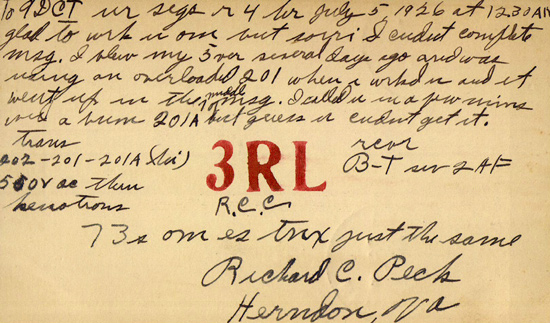 To 9DCT ur sigs r 4 hr July 5, 1926 at 12.30 AM
glad to wrk u om but sorri I cudnt complete
msg. I blew my 5 over several days ago and was
using an overloaded 201 when i wrked u and it
went up in the middle of msg. I called u in a few mins
a bum 201A but guess u cudnt get it.
trans
202-201-201A
550V ac then
3RL
rcvr
B-T 2AF
R.C.C.
73s om es tnx just the same
Richard C. Peck
Herndon, Va